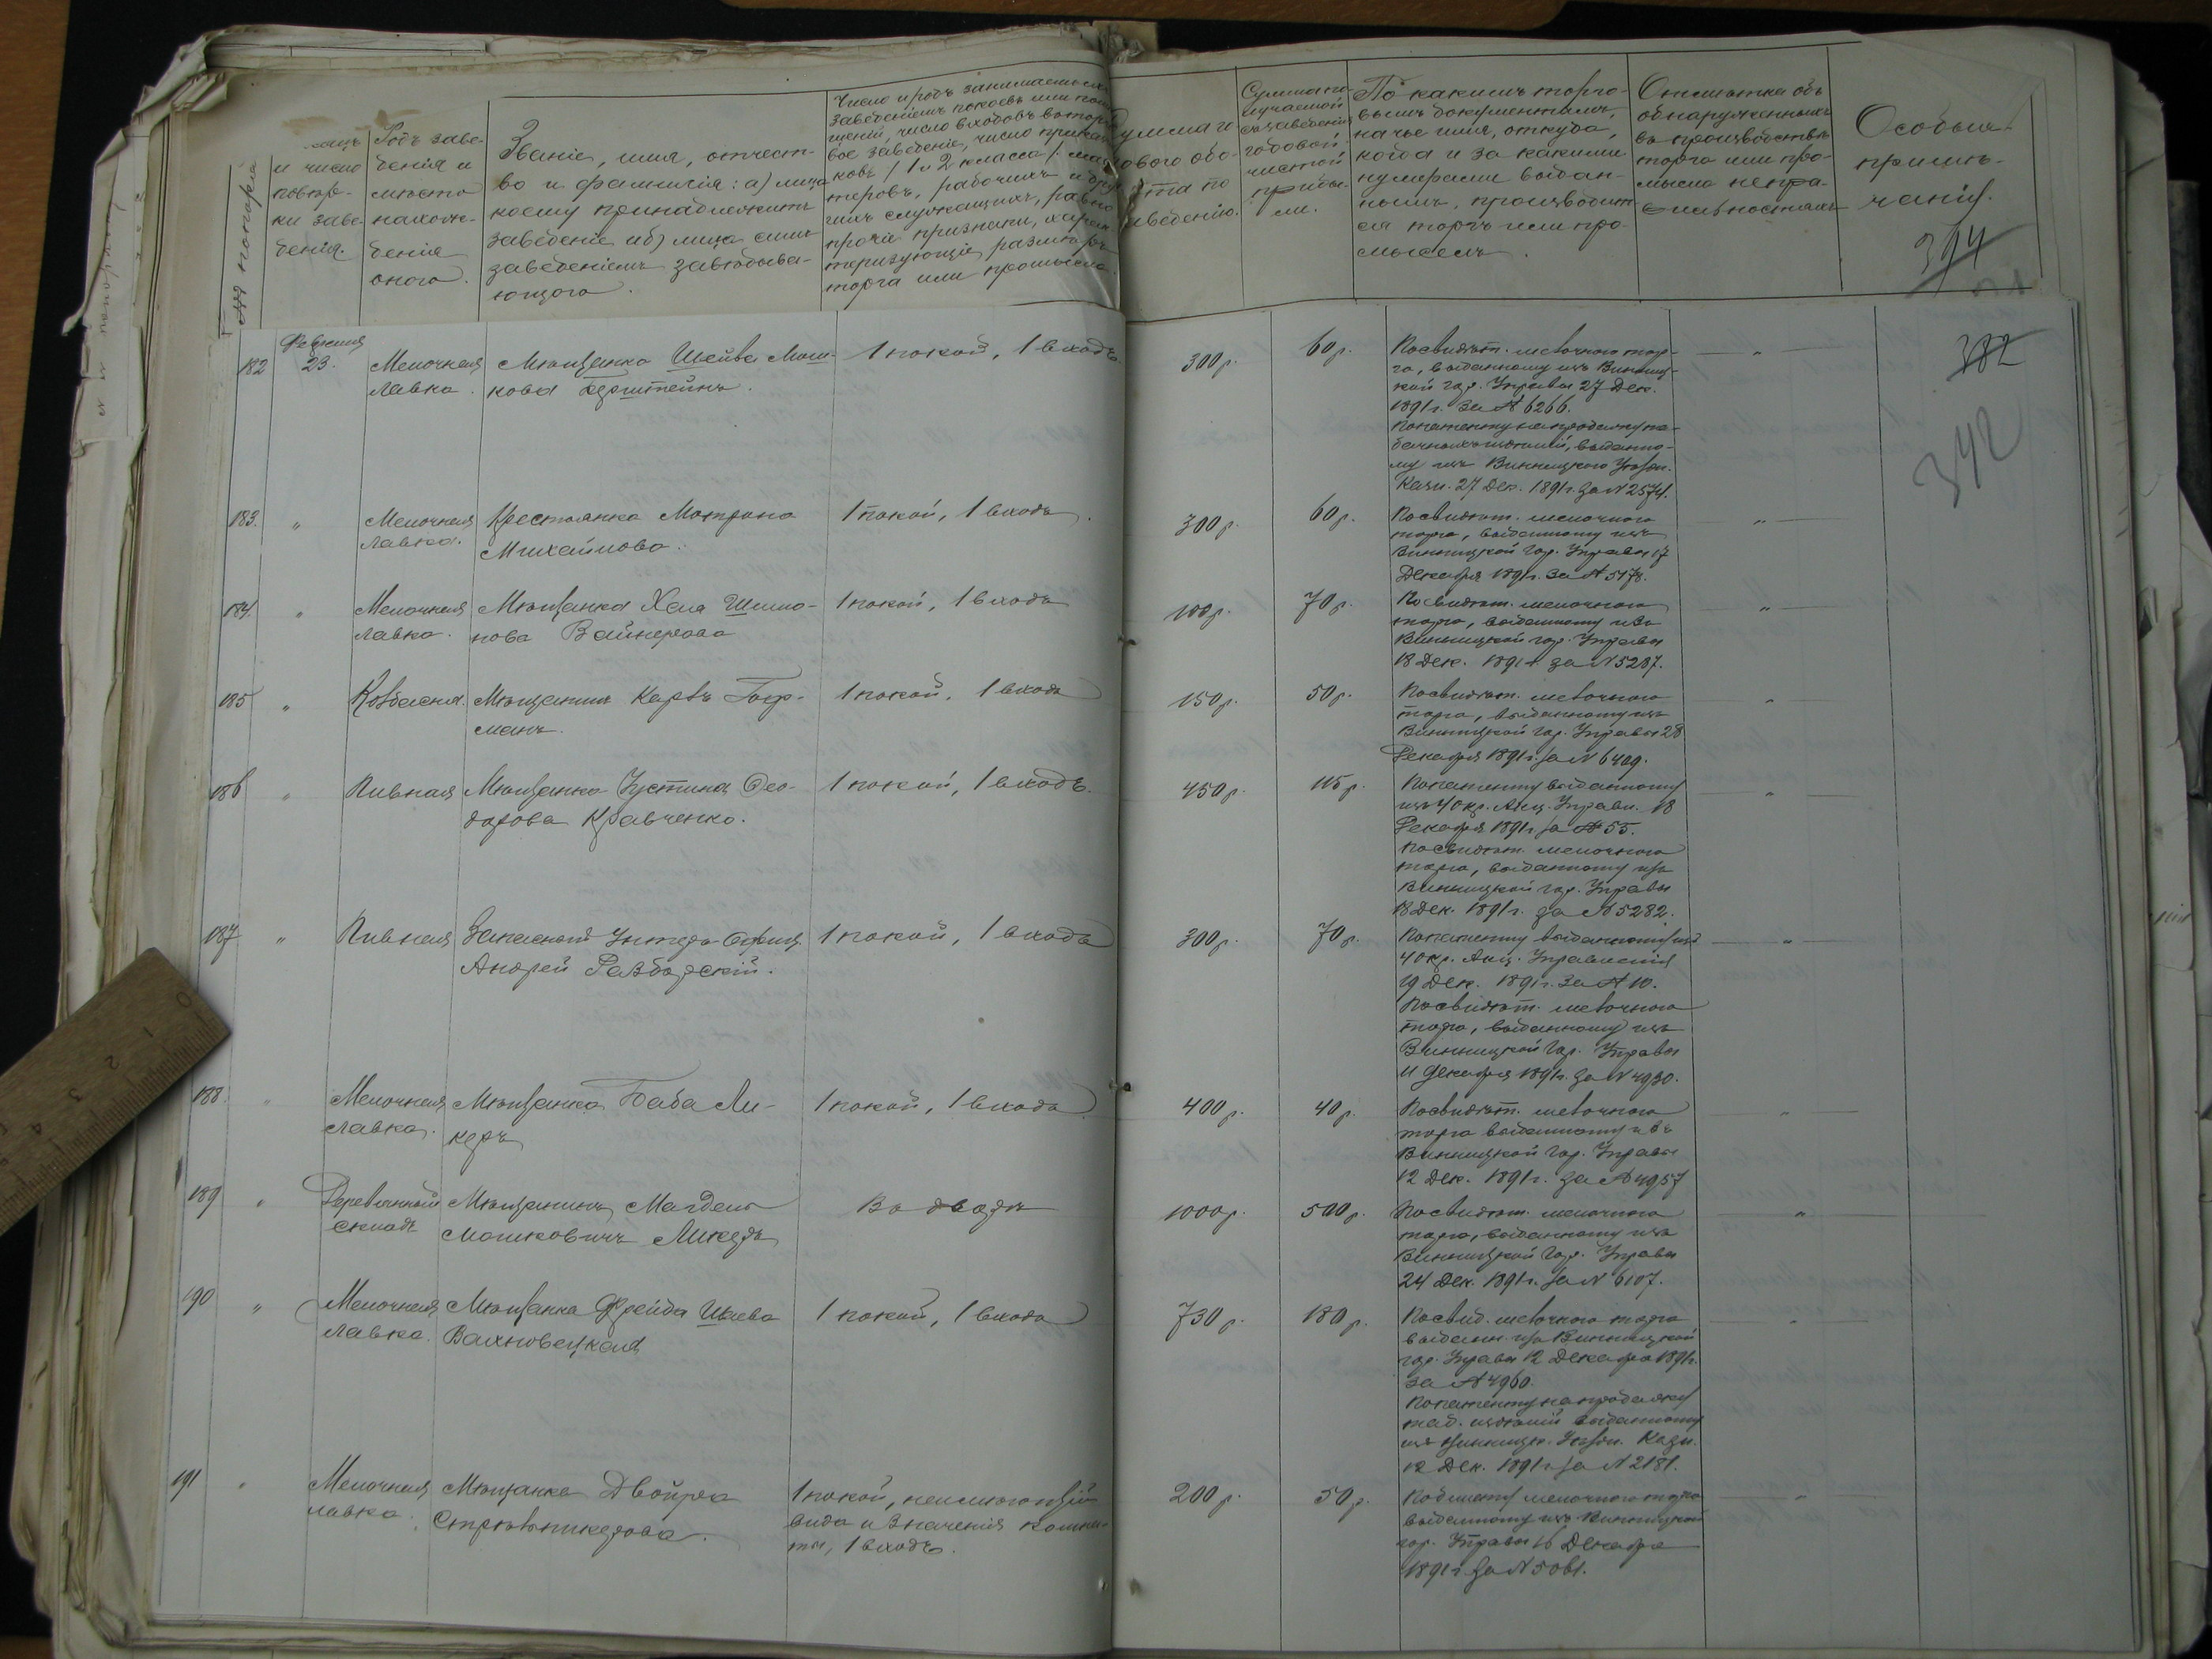 №№ по порядку
и число
повѣр-
ки заве-
денія.
Родъ заве-
денія и
мѣсто
нахож-
денія
онаго.
Званіе, имя, отчест-
во и фамилія: а) лица
коему принадлежитъ
заведеніе и б) лица симъ
заведеніемъ завѣдыва-
ющаго.
Число и родъ занимаемыхъ
заведеніемъ покоевъ или помѣ-
щеній, число входовъ въ торго-
вое заведеніе, число прикащи-
ковъ / 1 и 2 класса / мас-
теровъ, рабочихъ и дру-
гихъ служащихъ, равно
прочіе признаки, харак-
теризующіе размѣръ
торга или промысла.
Сумма го-
дового обо-
рота по
заведенію.
Сумма по-
лучаемой
съ заведенія
годовой
чистой
прибы-
ли.
По какимъ торго-
вымъ документамъ,
на чье имя, откуда,
когда и за какими
нумерами выдан-
нымъ, производит-
ся торгъ или про-
мыселъ.
Отмѣтка объ
обнаруженныхъ
въ производствѣ
торга или про-
мысла непра-
вильностяхъ
Особыя
примѣ-
чанія.
394
182
Февраля
23.
Мелочная
лавка.
Мѣщанка Шейва Мош-
кова Берштейнъ.
1 покой, 1 входъ.
300 р.
60 р.
По свидѣт. мелочного тор-
га, выданному изъ Винниц-
кой гор. Управы 27 Дек.
1891 г. за № 6266.
По патенту на продажу та-
бачныхъ издѣлій, выданно-
му изъ Винницкаго Уѣздн.
Казн. 27 Дек. 1891 г. за № 2574.
"
382
342
183.
"
Мелочная
лавка.
Крестьянка Матрона
Михайлова.
1 покой, 1 входъ.
300 р.
60 р.
По свидѣт. мелочного
торга, выданному изъ
Винницкой Гор. Управы 17
Декабря 1891 г. за № 5178.
"
184.
"
Мелочная
лавка.
Мѣщанка Хая Шимо-
нова Вайнерова
1 покой, 1 входъ
100 р.
70 р.
По свидѣт. мелочного
торга, выданному изъ
Винницкой гор. Управы
18 Дек. 1891 г. за № 5287.
"
185
"
Колбасная.
Мѣщанинъ Карлъ Гоф-
манъ.
1 покой, 1 входъ
150 р.
50 р.
По свидѣт. мелочного
торга, выданному изъ
Винницкой Гор. Управы 28
Декабря 1891 г. за № 6409.
"
186
"
Пивная
Мѣщанка Устина Ѳео-
дорова Кравченко.
1 покой, 1 входъ.
450 р.
115 р.
По патенту выданному
изъ 4 окр. Акц. Управл. 18
Декабря 1891 г. за № 55.
По свидѣт. мелочного
торга, выданному изъ
Винницкой гор. Управы
18 Дек. 1891 г. за № 5282.
"
187
"
Пивная
Запасной Унтеръ Офиц.
Андрей Разборскій.
1 покой, 1 входъ
300 р.
70 р.
По патенту выданному изъ
4 окр. Акц. Управленія
19 Дек. 1891 г. за № 10.
По свидѣт. мелочного
торга, выданному изъ
Винницкой Гор. Управы
11 Декабря 1891 г. за № 4930.
"
188.
"
Мелочная
лавка.
Мѣщанка Баба Ли-
керъ
1 покой, 1 входъ
400 р.
40 р.
По свидѣт. мелочного
торга выданному изъ
Винницкой Гор. Управы
12 Дек. 1891 г. за № 4957
"
189
"
Деревянный
складъ
Мѣщанинъ Магдель
Мошковичъ Ликеръ
Во дворѣ
1000 р.
500 р.
По свидѣт. мелочного
торга, выданному изъ
Винницкой Гор. Управы
24 Дек. 1891 г. за № 6107.
"
190
"
Мелочная
лавка.
Мѣщанка Фрейда Шаева
Вахновецкая
1 покой, 1 входъ
730 р.
180 р.
По свид. мелочного торга
выданн. изъ Винницкой
гор. Управы 12 Декабря 1891 г.
за № 4960.
По патенту на продажу
таб. издѣлій выданному
изъ Винницк. Уѣздн. Казн.
12 Дек. 1891 г. за № 2181.
"
191
"
Мелочная
лавка.
Мѣщанка Двойра
1 покой, неимѣющій
вида и значенія комна-
ты, 1 входъ.
200 р.
50 р.
мелочного торга
выданному изъ Винницкой
гор. Управы 16 Декабря
1891 г. за № 5061.
"